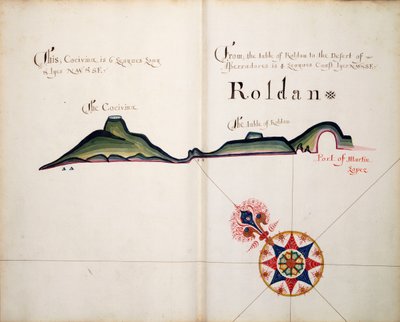 This, Cocivina, is 6 Leagues Long
& lyes N.W S.E.
From, the table of Roldan to the Desert of
is 4 Leagues Coast lyes N.W S.E.
Roldan
The Cocivina
The table of Roldan
Port of Martin
Lopez